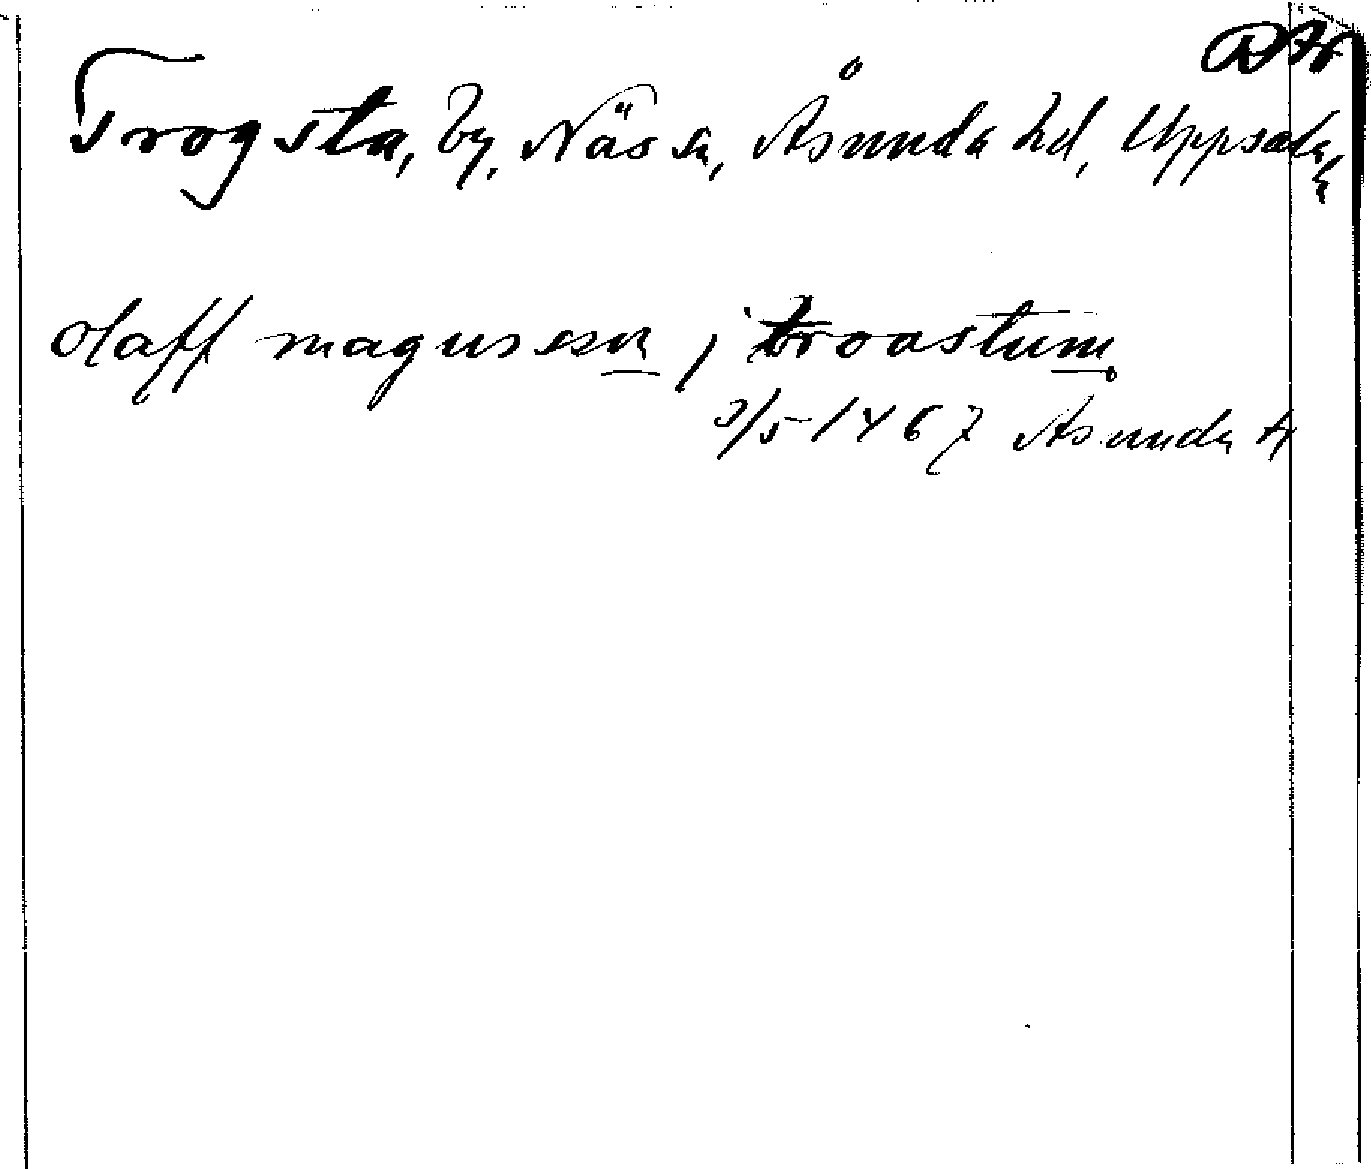 Trogsta, by, Näs sn, Åsunda hd, Uppsala l.
olaff magnussen j troastum
3/5 1467 Åsunda